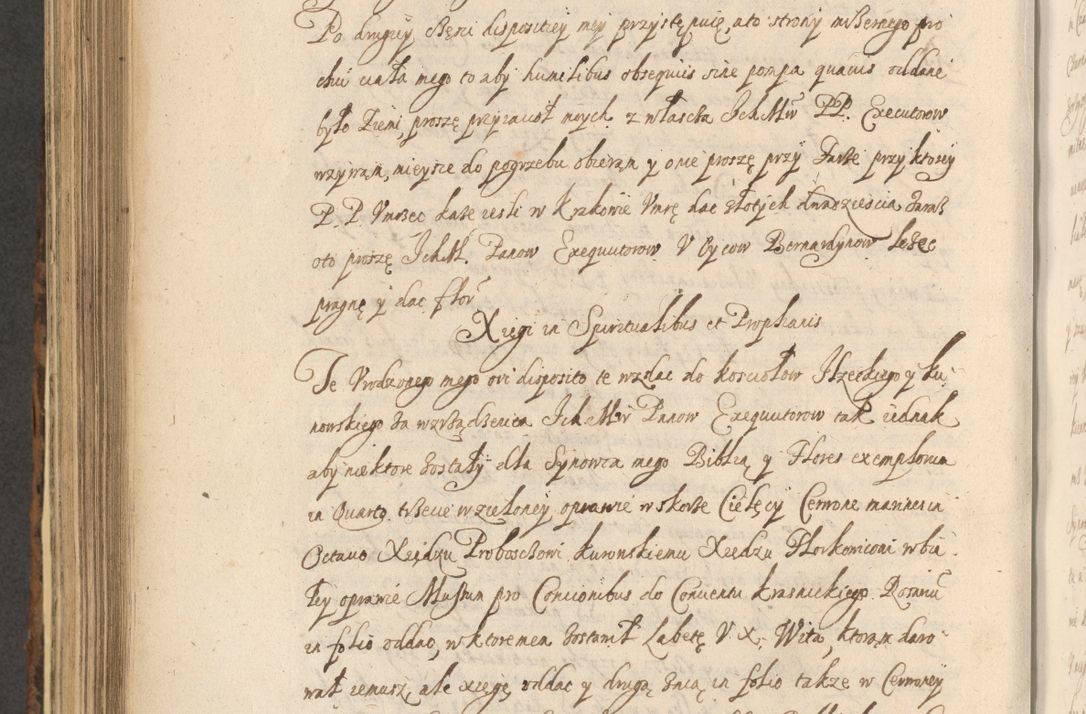 Po drugiey częsci dispositiey mey przystępuię, a to strony mizernego pro
chu ciała mego to aby humilibus obsequiis sine pompa quauis oddane
było Ziemi, proszę przyiacioł moych z własczą IchMw PP. Executorow
wzywam, mieysce do pogrzebu obieram y one proszę przy Farze przy ktorey
P. P. Vmożec każe iesli w Krakowie Vmrę dac złotych dwadziescia zaraz
o to proszę IchM. Panow Exequutorow V Oycow Bernardynow leżec
pragnę y dac flor
Xięgi in Spiritualibus et Prophanis
Te Vrodzonego mego disposito te wzdac do kosciołow Iłzeckiego y ku
nowskiego za wzrządzenien Ich Mw Panow Exequutorow tak iednak
aby niektore zostały dla Synowca mego Biblią y Flores exemplorum
in Quarto trzecie w zieloney oprawie w skorze Cielęcy Czerwone
in Octauo Xiędzu Proboschowi kunowskiemu Xiędzu w bia
łey oprawie Mussum pro Concionibus do Conuentu krasnickiego Rosinu
in folio oddac, w ktoremem zostawił V. X. Wita, ktorą m daro
wał iemusz, ale xięgę oddac y drugą in folio także w Czerwoney